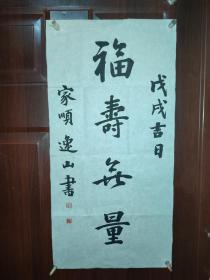 戊戌吉日
福壽無量
家順 逸山書